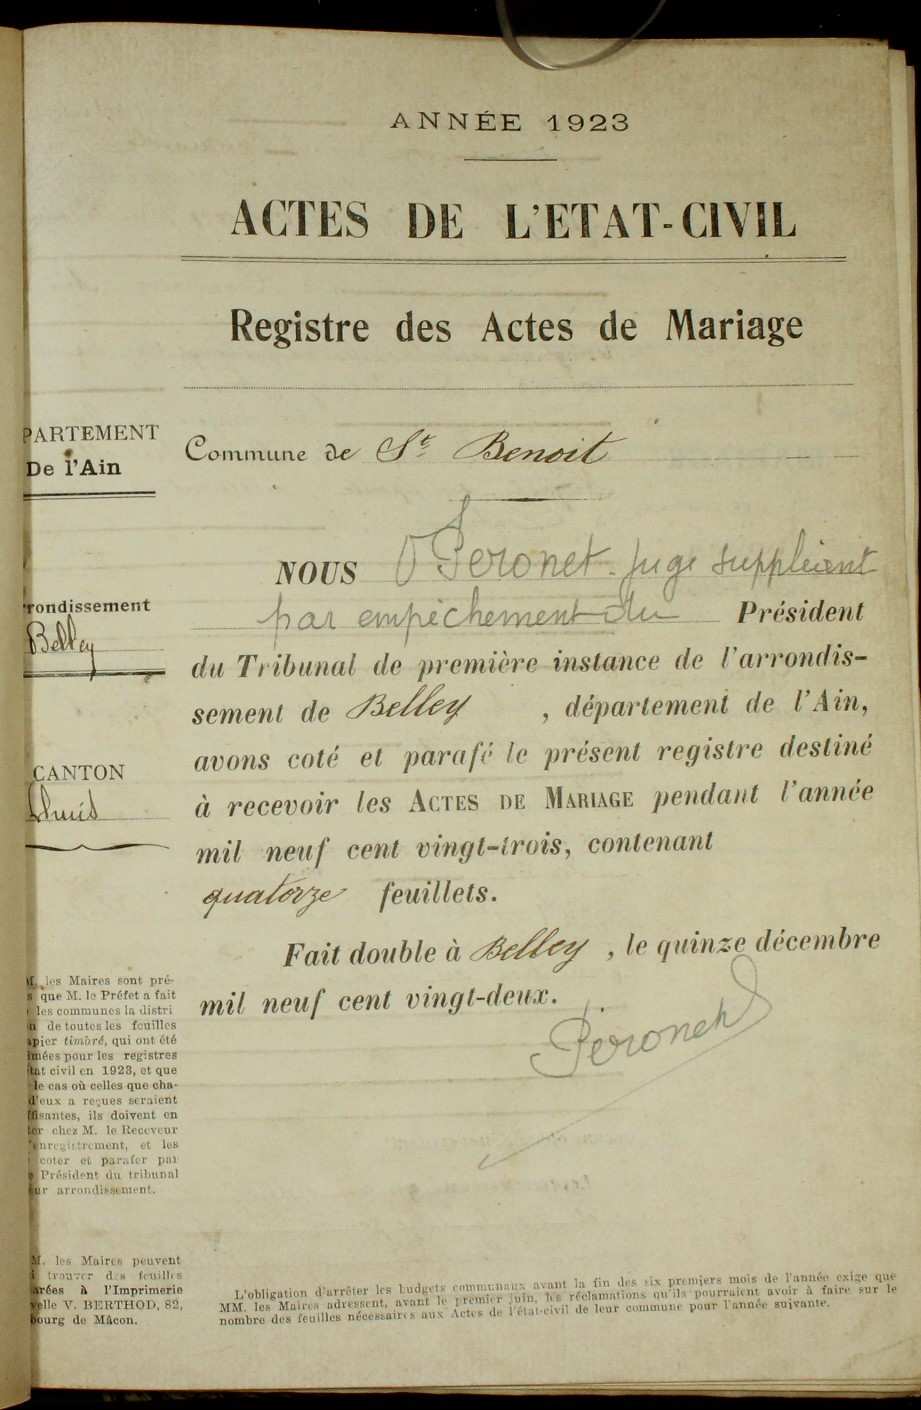 ANNÉE 1923
ACTES DE L'ETAT-CIVIL
Registre des Actes de Mariage
PARTEMENT
De l'Ain
Commune de St Benoit
NOUS Peronet Juge suppléant
par empêchement du Président
rondissement
Belley
du Tribunal de première instance de l'arrondis-
sement de Belley , département de l'Ain,
avons coté et parafé le présent registre destiné
CANTON
Lhuis
à recevoir les ACTES DE MARIAGE pendant l'année
mil neuf cent vingt-trois, contenant
quatorze feuillets.
Fait double à Belley , le quinze décembre
mil neuf cent vingt-deux.
Peronet
M. les Maires sont pré-
s que M. le Préfet a fait
les communes la distri
n de toutes les feuilles
apier timbré, qui ont été
imées pour les registres
tat civil en 1923, et que
le cas où celles que cha-
d'eux a reçues seraient
ffisantes, ils doivent en
ter chez M. le Receveur
enregistrement, et les
coter et parafer par
e Président du tribunal
eur arrondissement.
M. les Maires peuvent
trouver des feuilles
arées à l'Imprimerie
velle V. BERTHOD, 82,
bourg de Mâcon.
L'obligation d'arrêter les budgets communaux avant la fin des six premiers mois de l'année exige que
MM. les Maires adressent, avant le premier juin, les réclamations qu'ils pourraient avoir à faire sur le
nombre des feuilles nécessaires aux Actes de l'état-civil de leur commune pour l'année suivante.